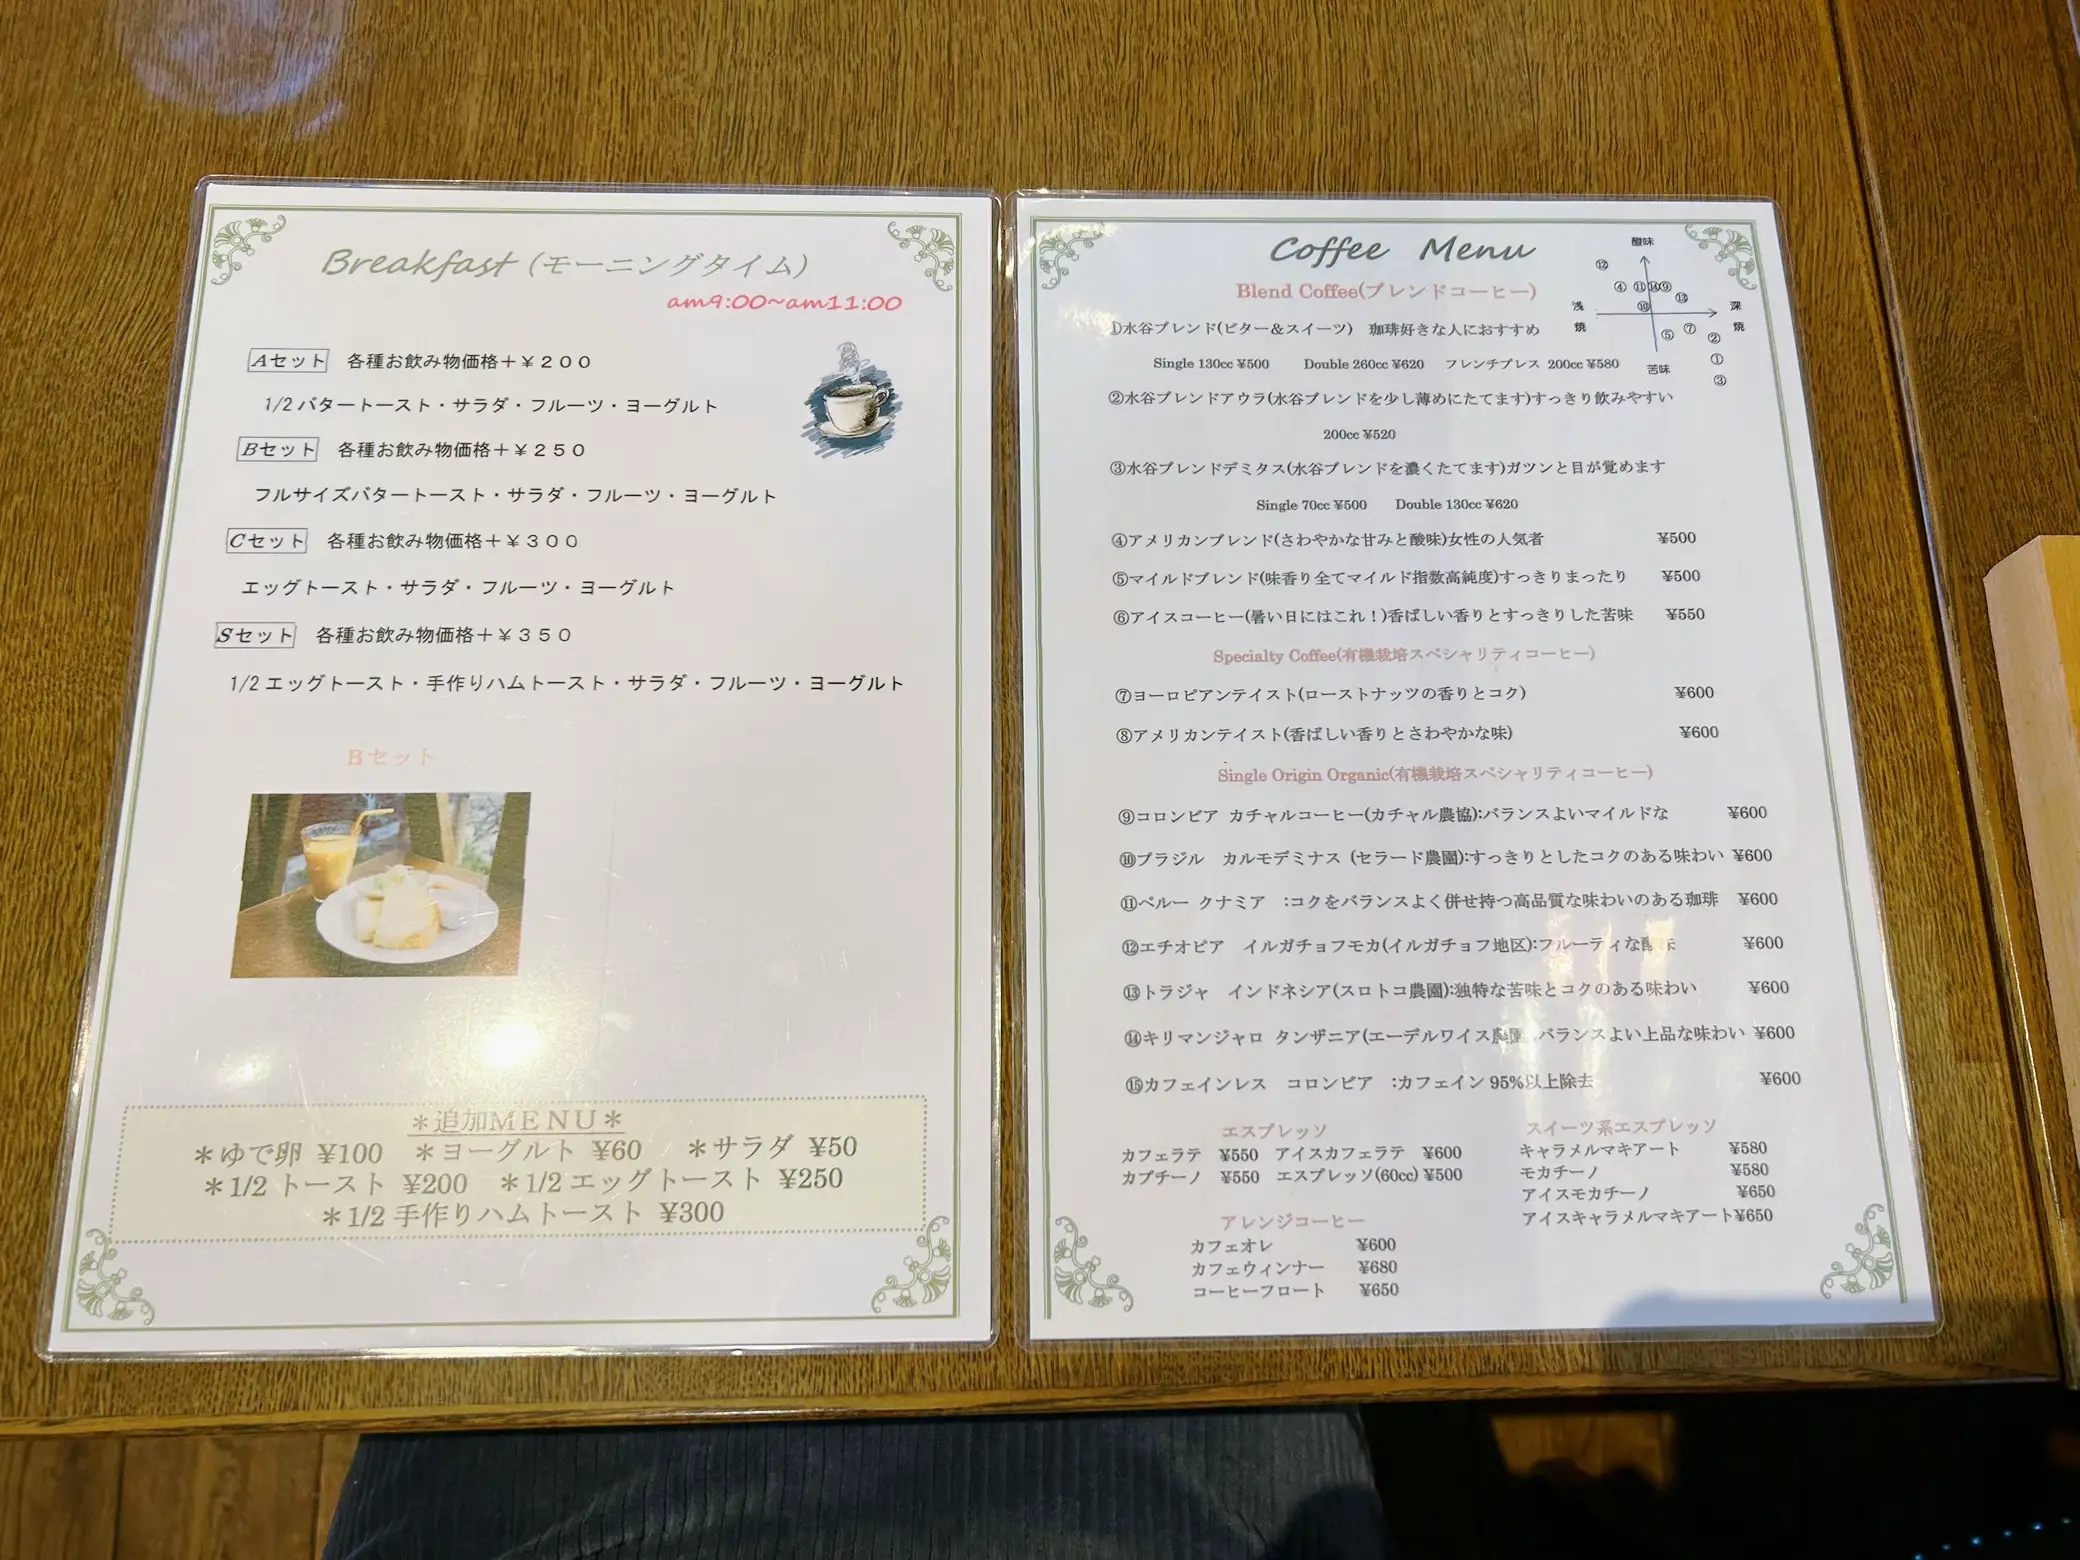 Breakfast (モーニングタイム)
am9:00~am11:00
Aセット 各種お飲み物価格＋￥２００
1/2 バタートースト・サラダ・フルーツ・ヨーグルト
Bセット 各種お飲み物価格＋￥２５０
フルサイズバタートースト・サラダ・フルーツ・ヨーグルト
Cセット 各種お飲み物価格＋￥３００
エッグトースト・サラダ・フルーツ・ヨーグルト
Sセット 各種お飲み物価格＋￥３５０
1/2 エッグトースト・手作りハムトースト・サラダ・フルーツ・ヨーグルト
Bセット
＊追加ＭＥＮＵ＊
＊ゆで卵 ¥100 ＊ヨーグルト ¥60 ＊サラダ ¥50
＊1/2 トースト ¥200 ＊1/2 エッグトースト ¥250
＊1/2 手作りハムトースト ¥300
Coffee Menu
Blend Coffee(ブレンドコーヒー)
酸味
⑫
④ ⑪ ⑭ ⑨
⑬
⑩
浅焼 深焼
⑤ ⑦
②
①
苦味
③
①水谷ブレンド(ビター＆スイーツ) 珈琲好きな人におすすめ
Single 130cc ¥500 Double 260cc ¥620 フレンチプレス 200cc ¥580
②水谷ブレンドアウラ(水谷ブレンドを少し薄めにたてます)すっきり飲みやすい
200cc ¥520
③水谷ブレンドデミタス(水谷ブレンドを濃くたてます)ガツンと目が覚めます
Single 70cc ¥500 Double 130cc ¥620
④アメリカンブレンド(さわやかな甘みと酸味)女性の人気者 ¥500
⑤マイルドブレンド(味香り全てマイルド指数高純度)すっきりまったり ¥500
⑥アイスコーヒー(暑い日にはこれ！)香ばしい香りとすっきりした苦味 ¥550
Specialty Coffee(有機栽培スペシャリティコーヒー)
⑦ヨーロピアンテイスト(ローストナッツの香りとコク) ¥600
⑧アメリカンテイスト(香ばしい香りとさわやかな味) ¥600
Single Origin Organic(有機栽培スペシャリティコーヒー)
⑨コロンビア カチャルコーヒー(カチャル農協):バランスよいマイルドな ¥600
⑩ブラジル カルモデミナス (セラード農園):すっきりとしたコクのある味わい ¥600
⑪ペルー クナミア :コクをバランスよく併せ持つ高品質な味わいのある珈琲 ¥600
⑫エチオピア イルガチョフモカ(イルガチョフ地区):フルーティな酸味 ¥600
⑬トラジャ インドネシア(スロトコ農園):独特な苦味とコクのある味わい ¥600
⑭キリマンジャロ タンザニア(エーデルワイス農園 バランスよい上品な味わい ¥600
⑮カフェインレス コロンビア :カフェイン 95%以上除去 ¥600
エスプレッソ
カフェラテ ¥550 アイスカフェラテ ¥600
カプチーノ ¥550 エスプレッソ(60cc) ¥500
スイーツ系エスプレッソ
キャラメルマキアート ¥580
モカチーノ ¥580
アイスモカチーノ ¥650
アイスキャラメルマキアート¥650
アレンジコーヒー
カフェオレ ¥600
カフェウィンナー ¥680
コーヒーフロート ¥650